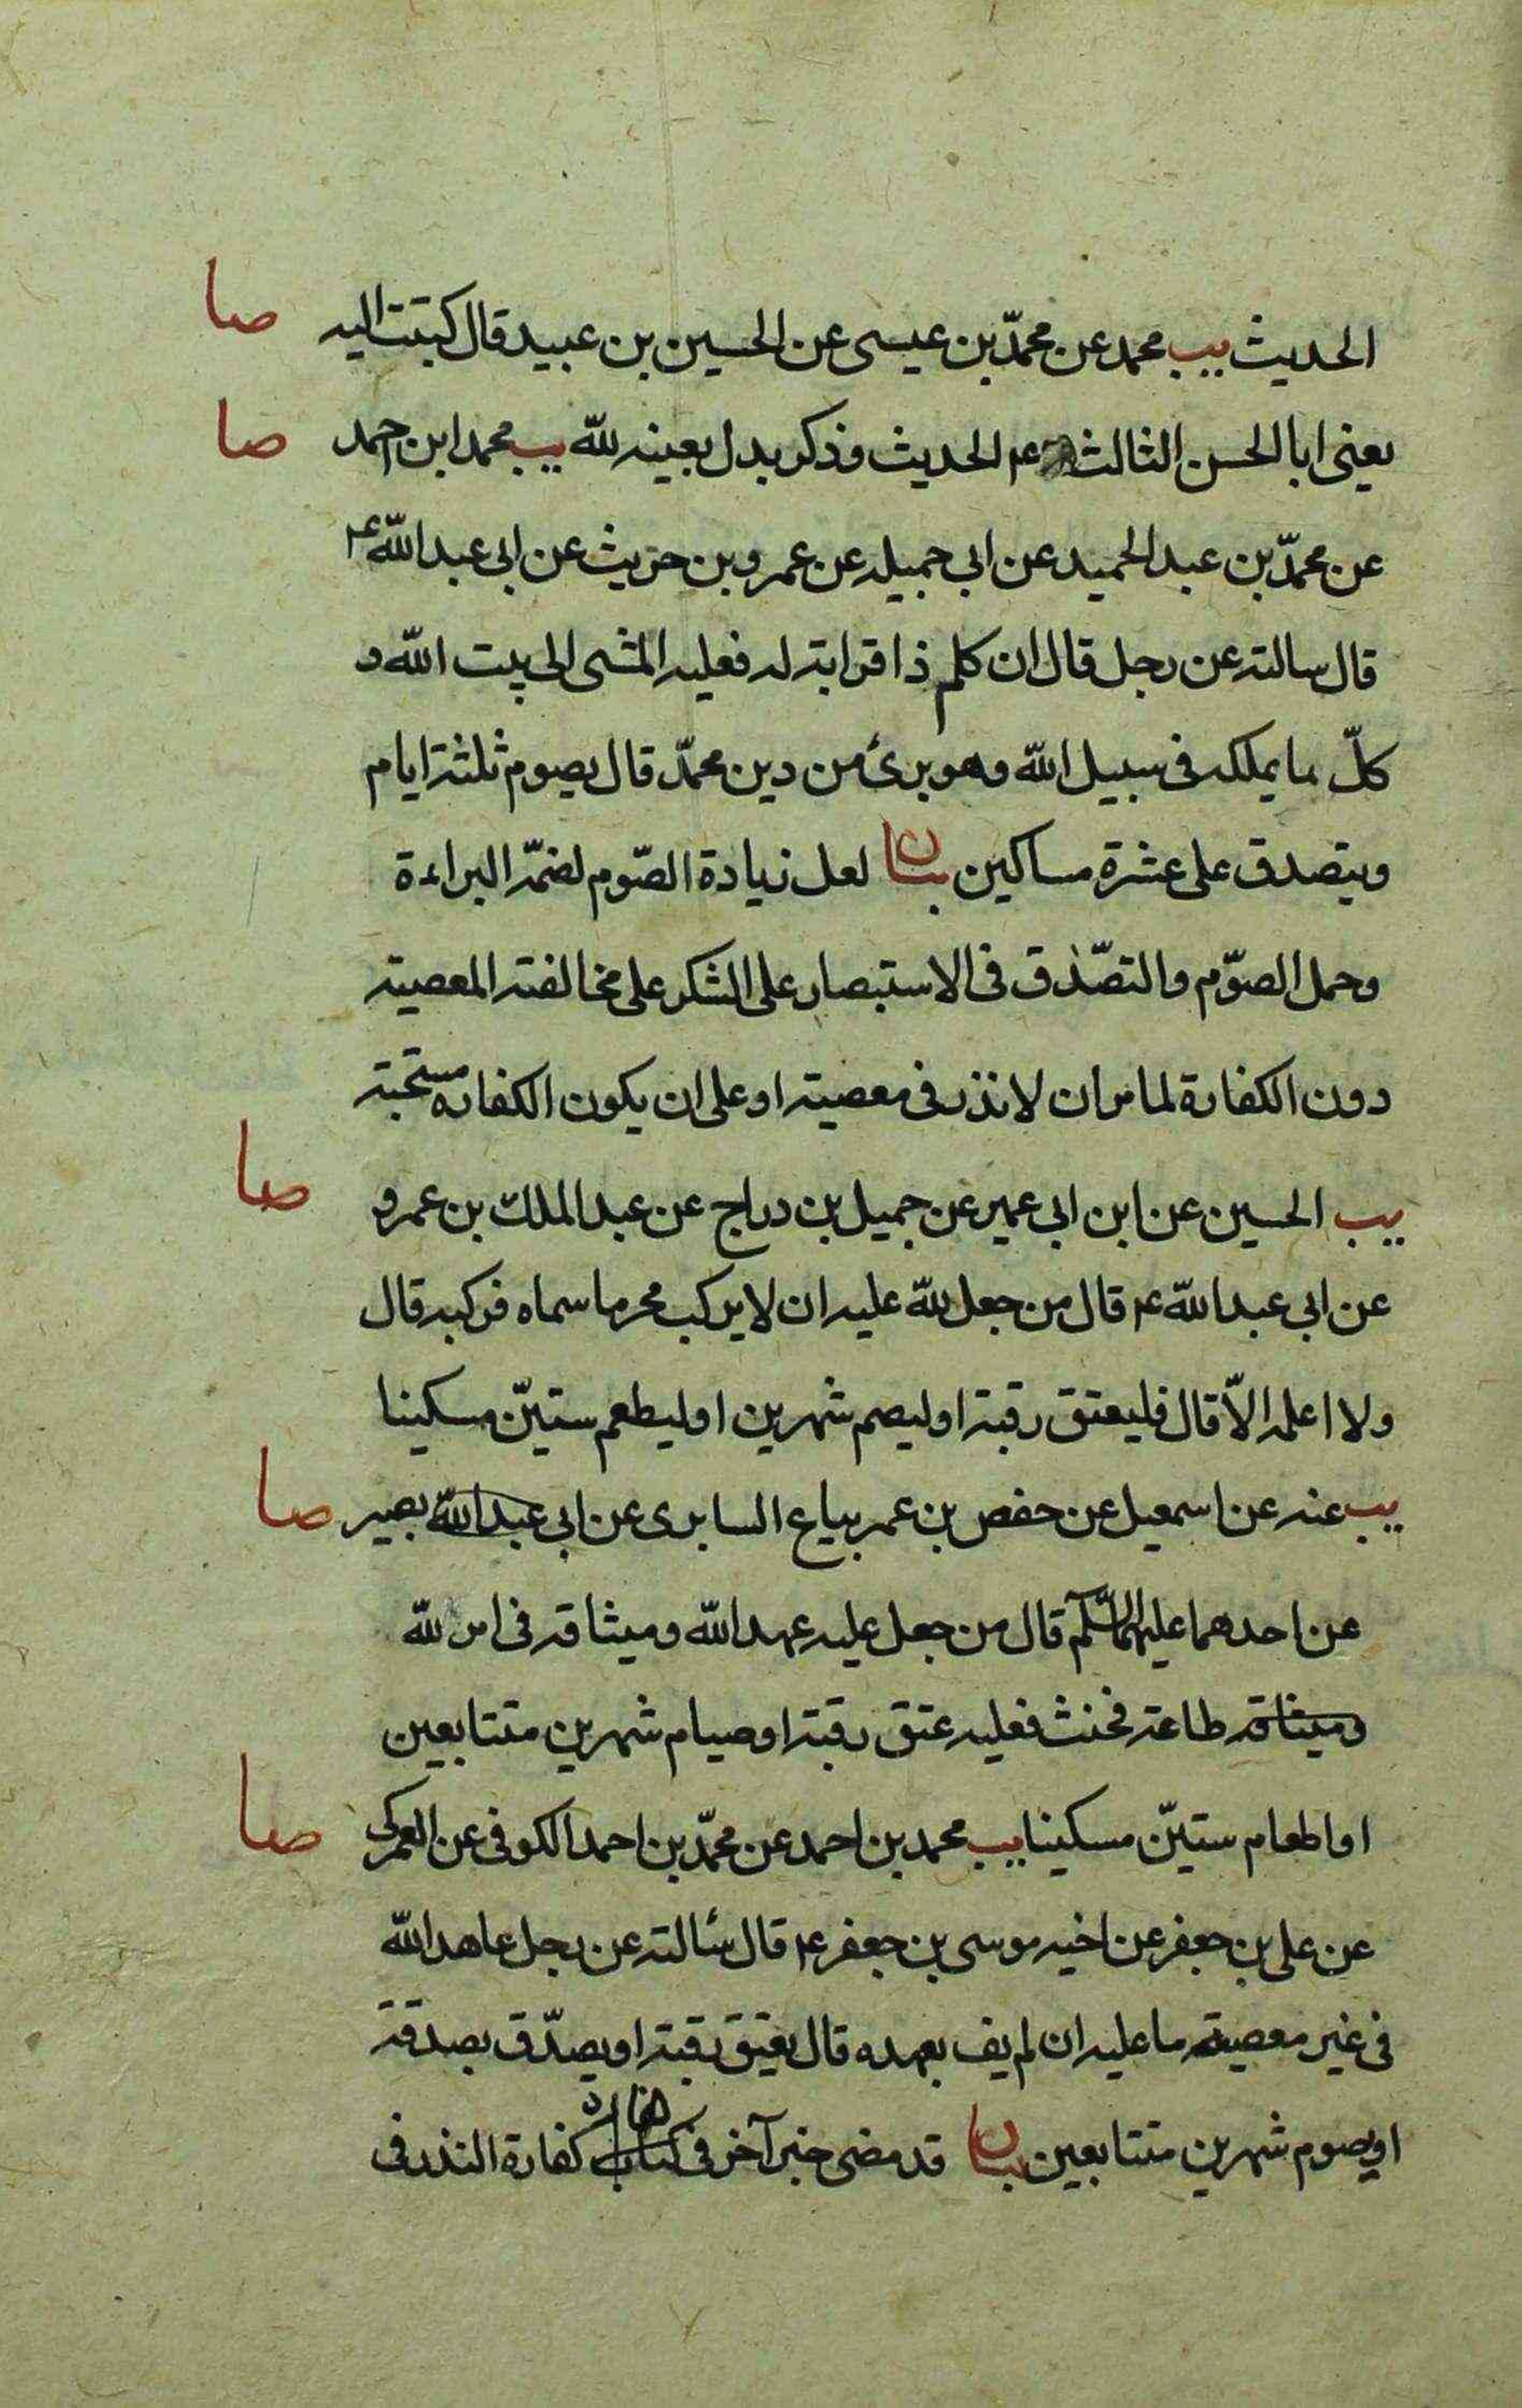 الحديث يب محمد عن محمّد بن عيسى عن الحسين بن عبيد قال كتبت اليه صا
يعنى ابا الحسن الثالث ع الحديث وذكر بدل بعينه لله يب محمد ابن احمد صا
عن محمّد بن عبد الحميد عن ابى جميله عن عمرو بن حريث عن ابى عبد الله ع
قال سالته عن رجل قال ان كلم ذا قرابة له فعليه المشى الى بيت الله و
كلّ ما يملكه فى سبيل الله وهو برئ من دين محمّد قال يصوم ثلثة ايام
ويتصدق على عشرة مساكين بيان لعل زيادة الصّوم لضمّه البراءة
وحمل الصوّم والتصّدق فى الاستبصار على الشكر على مخالفته المعصية
دون الكفارة لما مر ان لا نذر فى معصية او على ان يكون الكفاره مستحبة
يب الحسين عن ابن ابى عمير عن جميل بن دراج عن عبد الملك بن عمرو صا
عن ابى عبد الله ع قال من جعل لله عليه ان لا يركب محرما سماه فركبه قال
ولا اعلمه الاّ قال فليعتق رقبة او ليصم شهرين او ليطعم ستيّن مسكينا
يب عنه عن اسمعيل عن حفص بن عمر بياع السابرى عن ابى عبد الله بصير صا
عن احدهما عليهما السّلم قال من جعل عليه عهد الله وميثاقه فى امر لله
وميثاقه طاعة فحنث فعليه عتق رقبة او صيام شهرين متتابعين
او اطعام ستيّن مسكينا يب محمد بن احمد عن محمّد بن احمد الكوفى عن العمركى صا
عن على بن جعفر عن اخيه موسى بن جعفر ع قال سئالته عن رجل عاهد الله
فى غير معصية ما عليه ان لم يف بعهده قال يعتق رقبة او يصدّق بصدقة
او يصوم شهرين متتابعين بيان قد مضى خبر آخر فى كتاب كفارة النذر فى